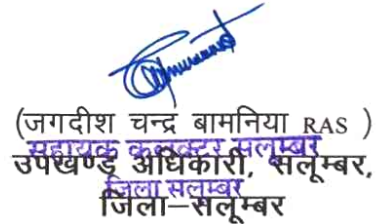 (जगदीश चन्द्र बामनिया RAS )
सहायक कलक्टर सलूम्बर
उपखण्ड अधिकारी, सलूम्बर,
जिला सलूम्बर
जिला–सलूम्बर